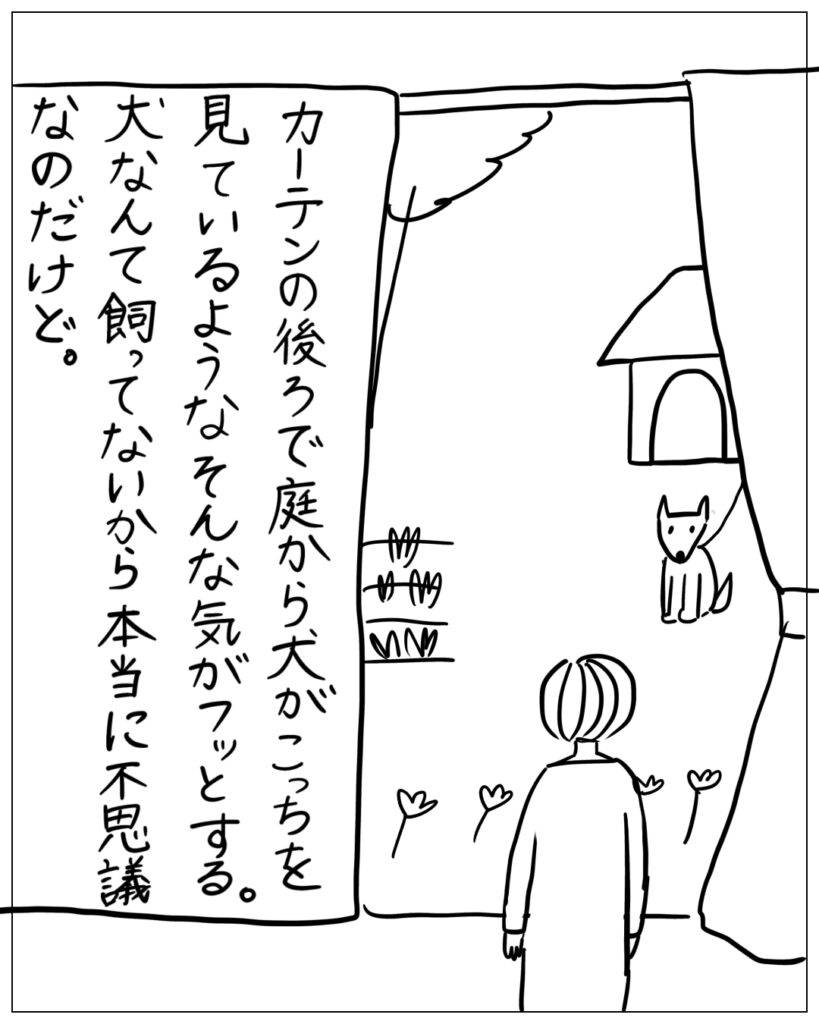 カーテンの後ろで庭から犬がこっちを
見ているようなそんな気がフッとする。
犬なんて飼ってないから本当に不思議
なのだけど。